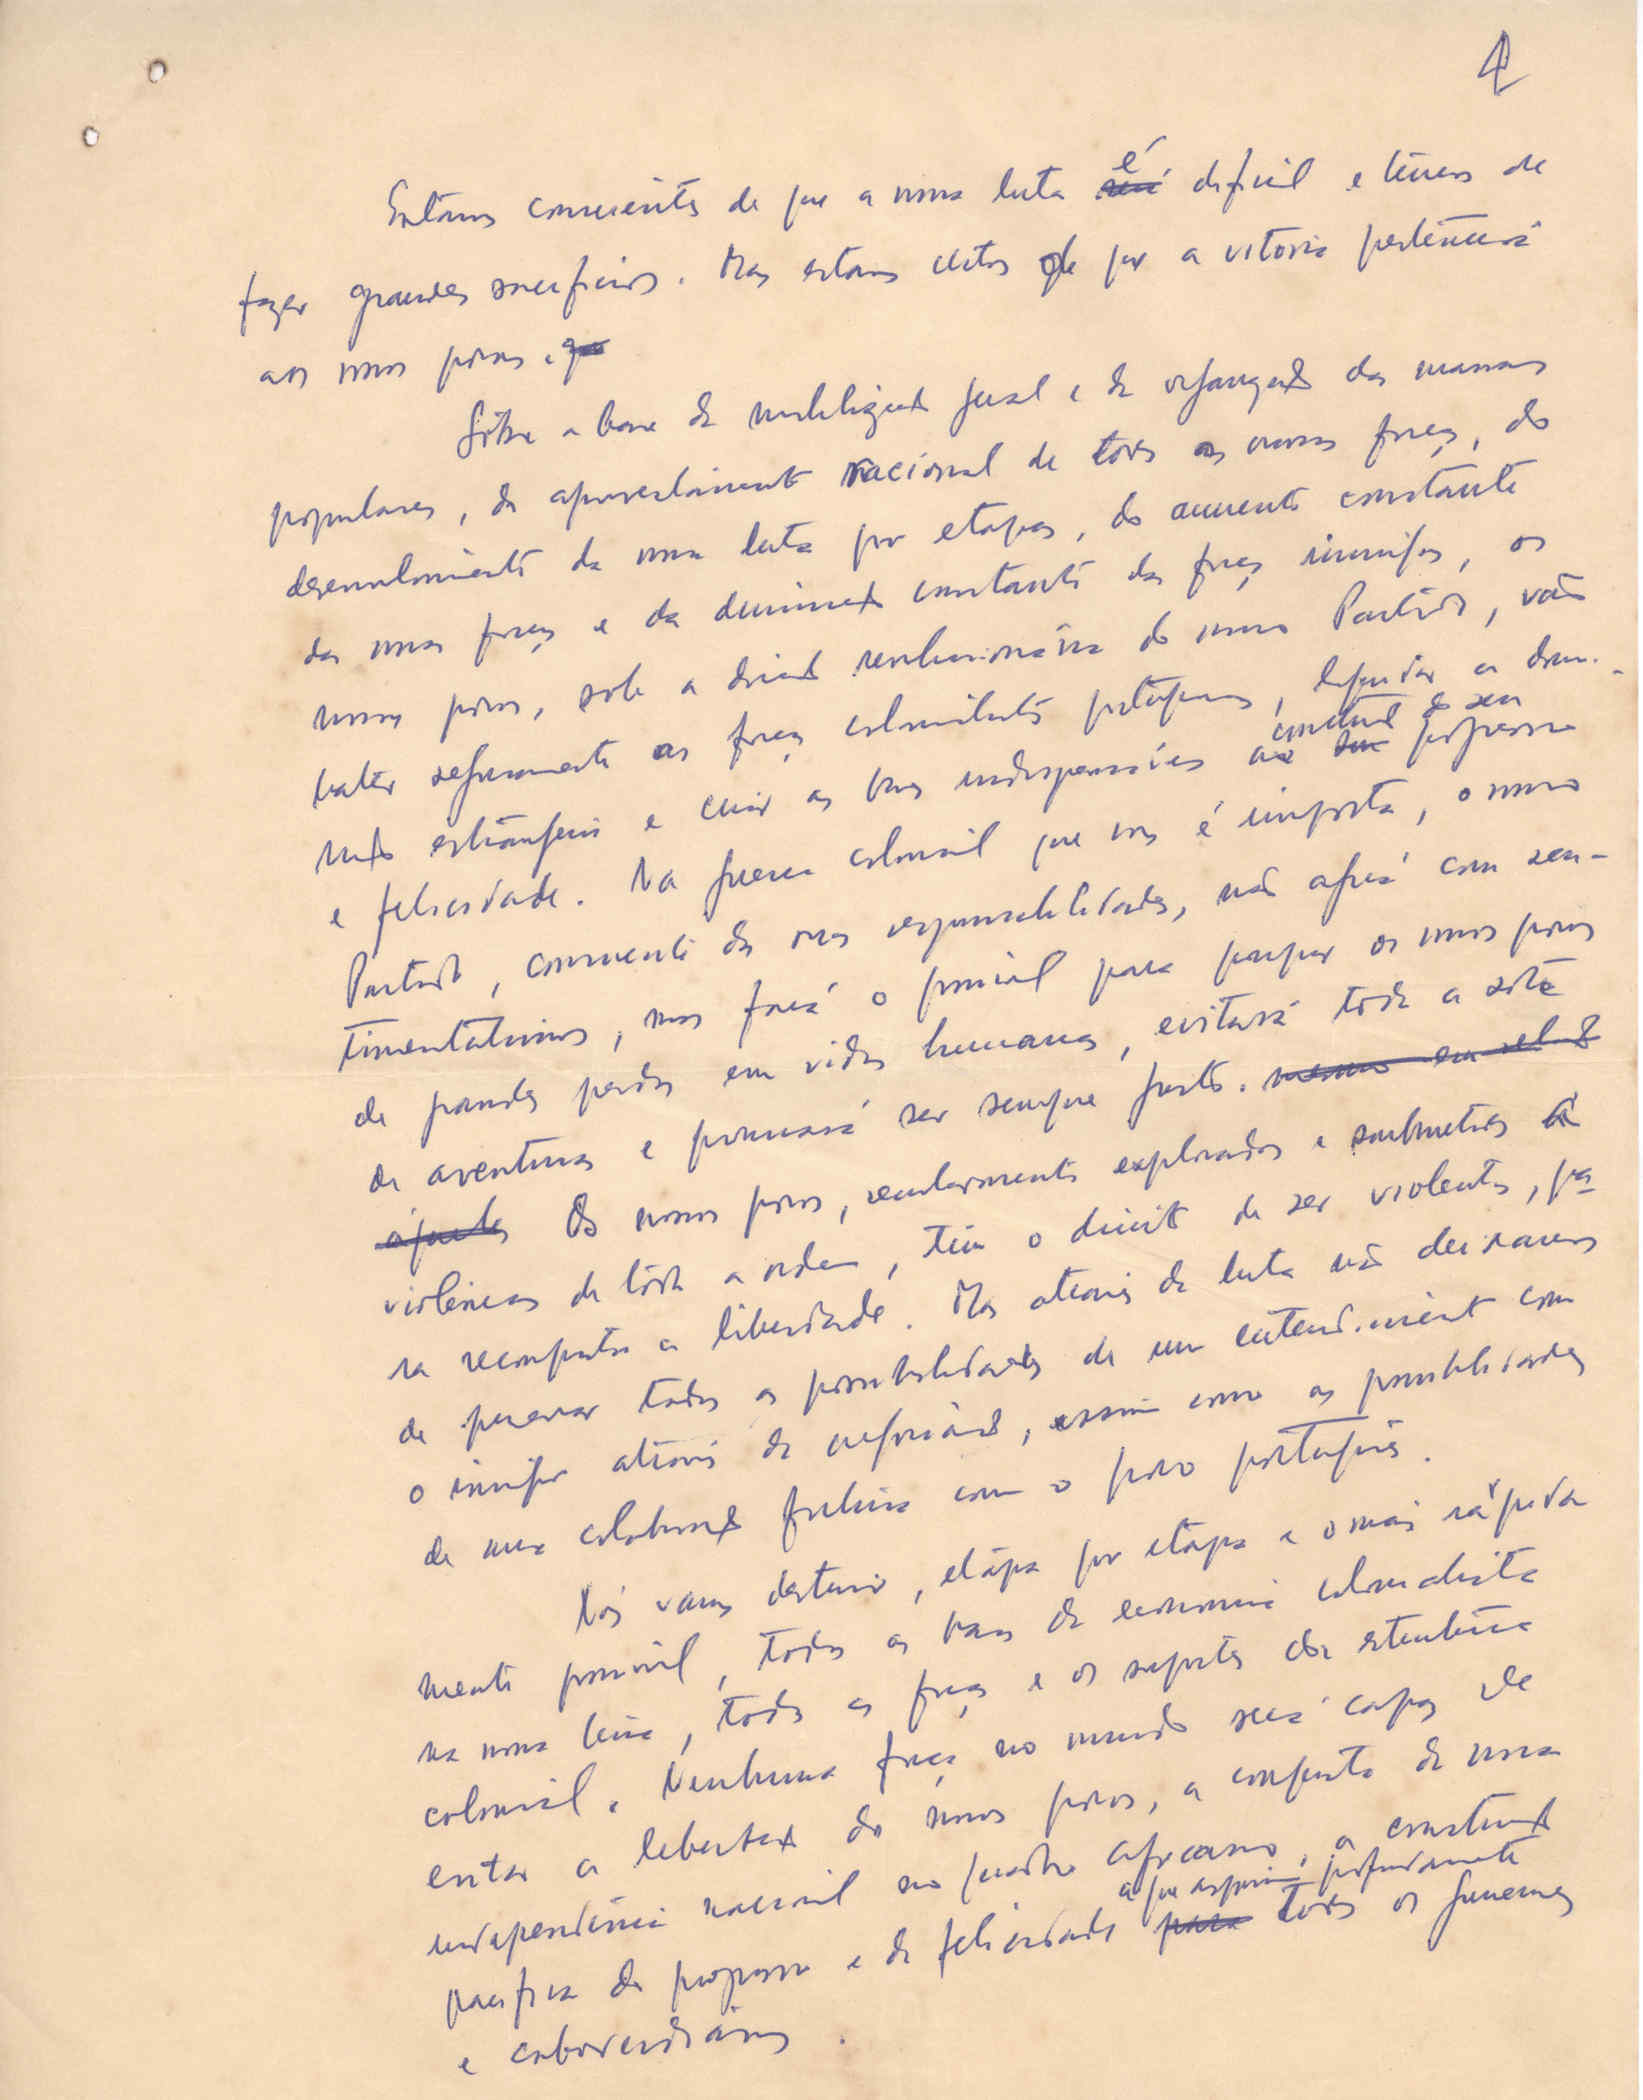 Estamos conscientes de que a nossa luta é difícil e temos de
fazer grandes sacrifícios. Mas estamos certos de que a vitoria pertencerá
aos nossos povos.
Sôbre a base da mobilização geral e da organização das massas
populares, do aproveitamento racional de todas as nossas forças, do
desenvolvimento da nossa luta por etapas, do aumento constante
das nossas forças e da diminuição constante das forças inimigas, os
nossos povos, sob a direcção revolucionária do nosso Partido, vão
bater seguramente as forças colonialistas portuguesas, liquidar a domi-
nação estrangeira e criar as bases indispensáveis à construção do seu progresso
e felicidade. Na guerra colonial que nos é imposta, o nosso
Partido, consciente das suas responsabilidades, não agirá com sen-
timentalismos, mas fará o possível para poupar os nossos povos
de grandes perdas em vidas humanas, evitará toda a sorte
de aventuras e procurará ser sempre justo. mesmo em relação
àqueles Os nossos povos, secularmente explorados e submetidos a
violências de tôda a ordem, têm o direito de ser violentos, pa-
ra reconquistar a liberdade. Mas através da luta não deixaremos
de procurar todas as possibilidades de um entendimento com
o inimigo através de negociações, assim como as possibilidades
de uma colaboração futura com o povo português.
Nós vamos destruir, etapa por etapa e o mais rápida
mente possível, todas as bases da economia colonialista
na nossa terra, todas as forças e os suportes da estrutura
colonial. Nenhuma força no mundo será capaz de
evitar a libertação dos nossos povos, a conquista da nossa
independência nacional no quadro africano, a construção
pacífica do progresso e da felicidade a que aspiram profundamente todos os guineenses
e caboverdianos.